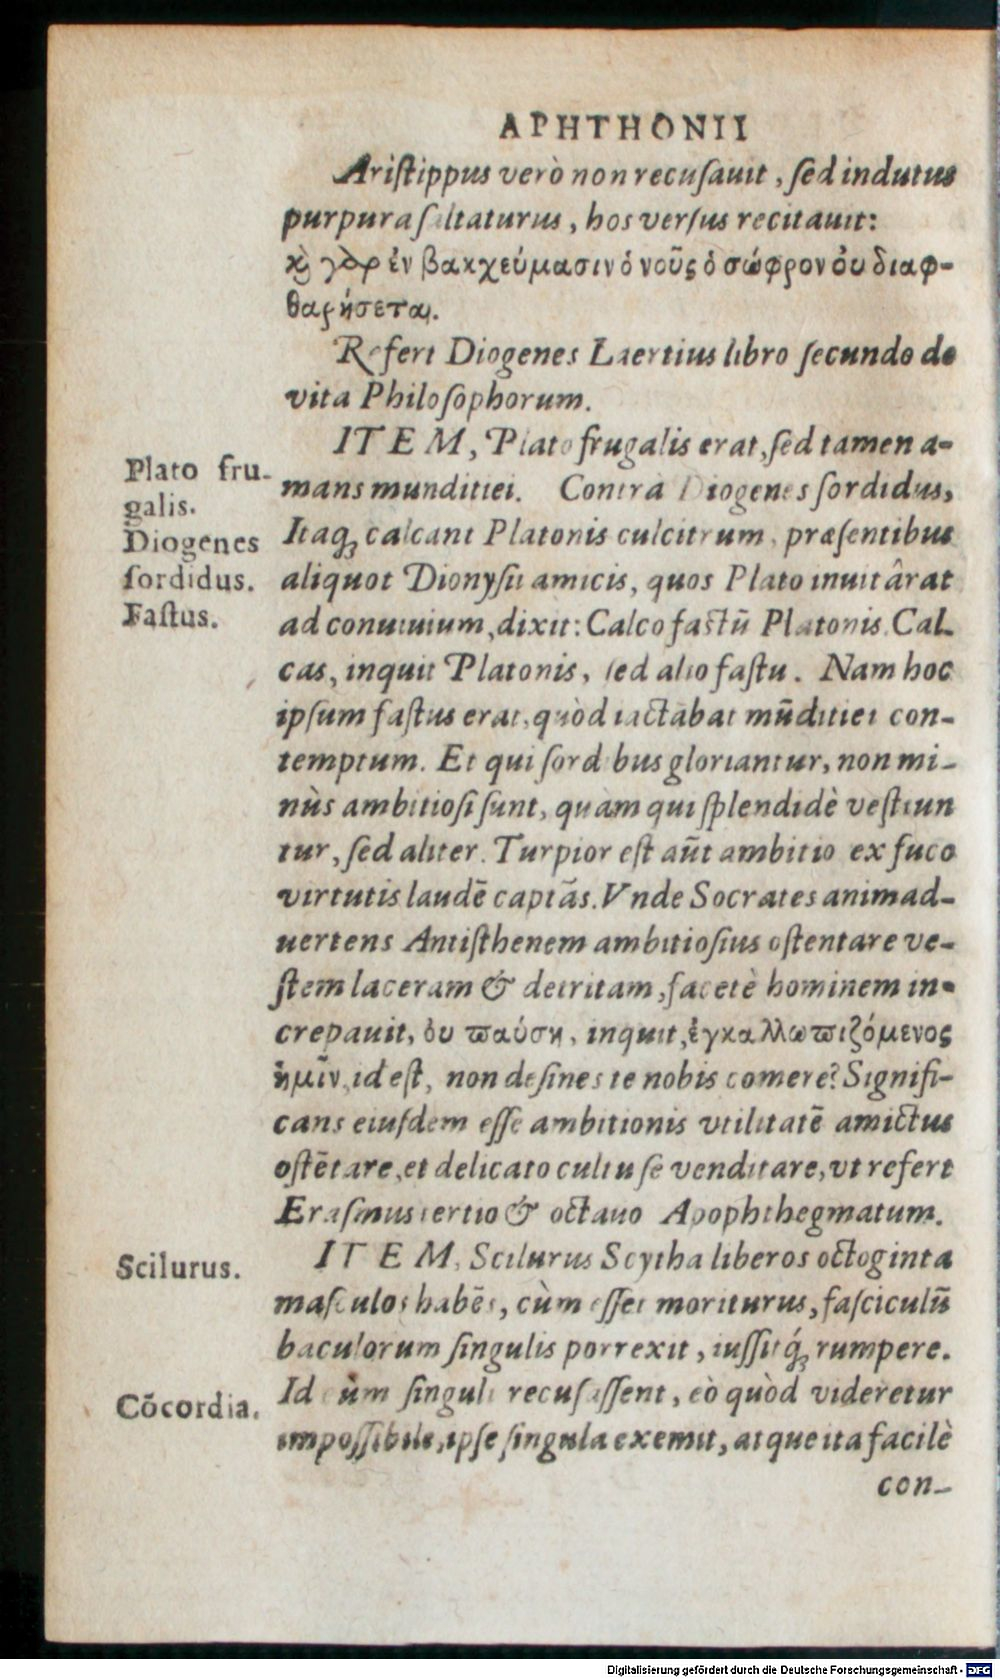 APHTHONII
Aristippus verò non recusauit, sed indutus
purpura saltaturus, hos versus recitauit:
κ̀ γὸρ ἐν βακχεύμασιν ὁ νοῦς ὁ σώφρον ὀυ διαφ-
θαρήσεται.
Refert Diogenes Laertius libro secundo de
vita Philosophorum.
ITEM, Plato frugalis erat, sed tamen a-
Plato fru-
mans munditiei. Contrà Diogenes sordidus,
galis.
Itaq; calcant Platonis culcitrum, præsentibus
Diogenes
aliquot Dionysii amicis, quos Plato inuitârat
sordidus.
ad conuiuium, dixit: Calco fastũ Platonis. Cal-
Fastus.
cas, inquit Platonis, sed alio fastu. Nam hoc
ipsum fastus erat, quòd iactabat mũditiei con-
temptum. Et qui sordibus gloriantur, non mi-
nùs ambitiosi sunt, quàm qui splendidè vestiun
tur, sed aliter. Turpior est aũt ambitio ex fuco
virtutis laudẽ captãs. Vnde Socrates animad-
uertens Antisthenem ambitiosius ostentare ve-
stem laceram & detritam, facetè hominem in-
crepauit, ὀυ παύση, inquit, ἐγκαλλωπιζόμενος
ἡμῖν, id est, non desines te nobis comere? Signifi-
cans eiusdem esse ambitionis vtilitatẽ amictus
ostẽtare, et delicato cultu se venditare, vt refert
Erasmus tertio & octauo Apophthegmatum.
ITEM, Scilurus Scytha liberos octoginta
Scilurus.
masculos habẽs, cùm esset moriturus, fasciculũ
baculorum singulis porrexit, iussitq́; rumpere.
Id cùm singuli recusassent, eò quòd videretur
Cõcordia.
impossibile, ipse singula exemit, atque ita facilè
con-
Digitalisierung gefördert durch die Deutsche Forschungsgemeinschaft - DFG